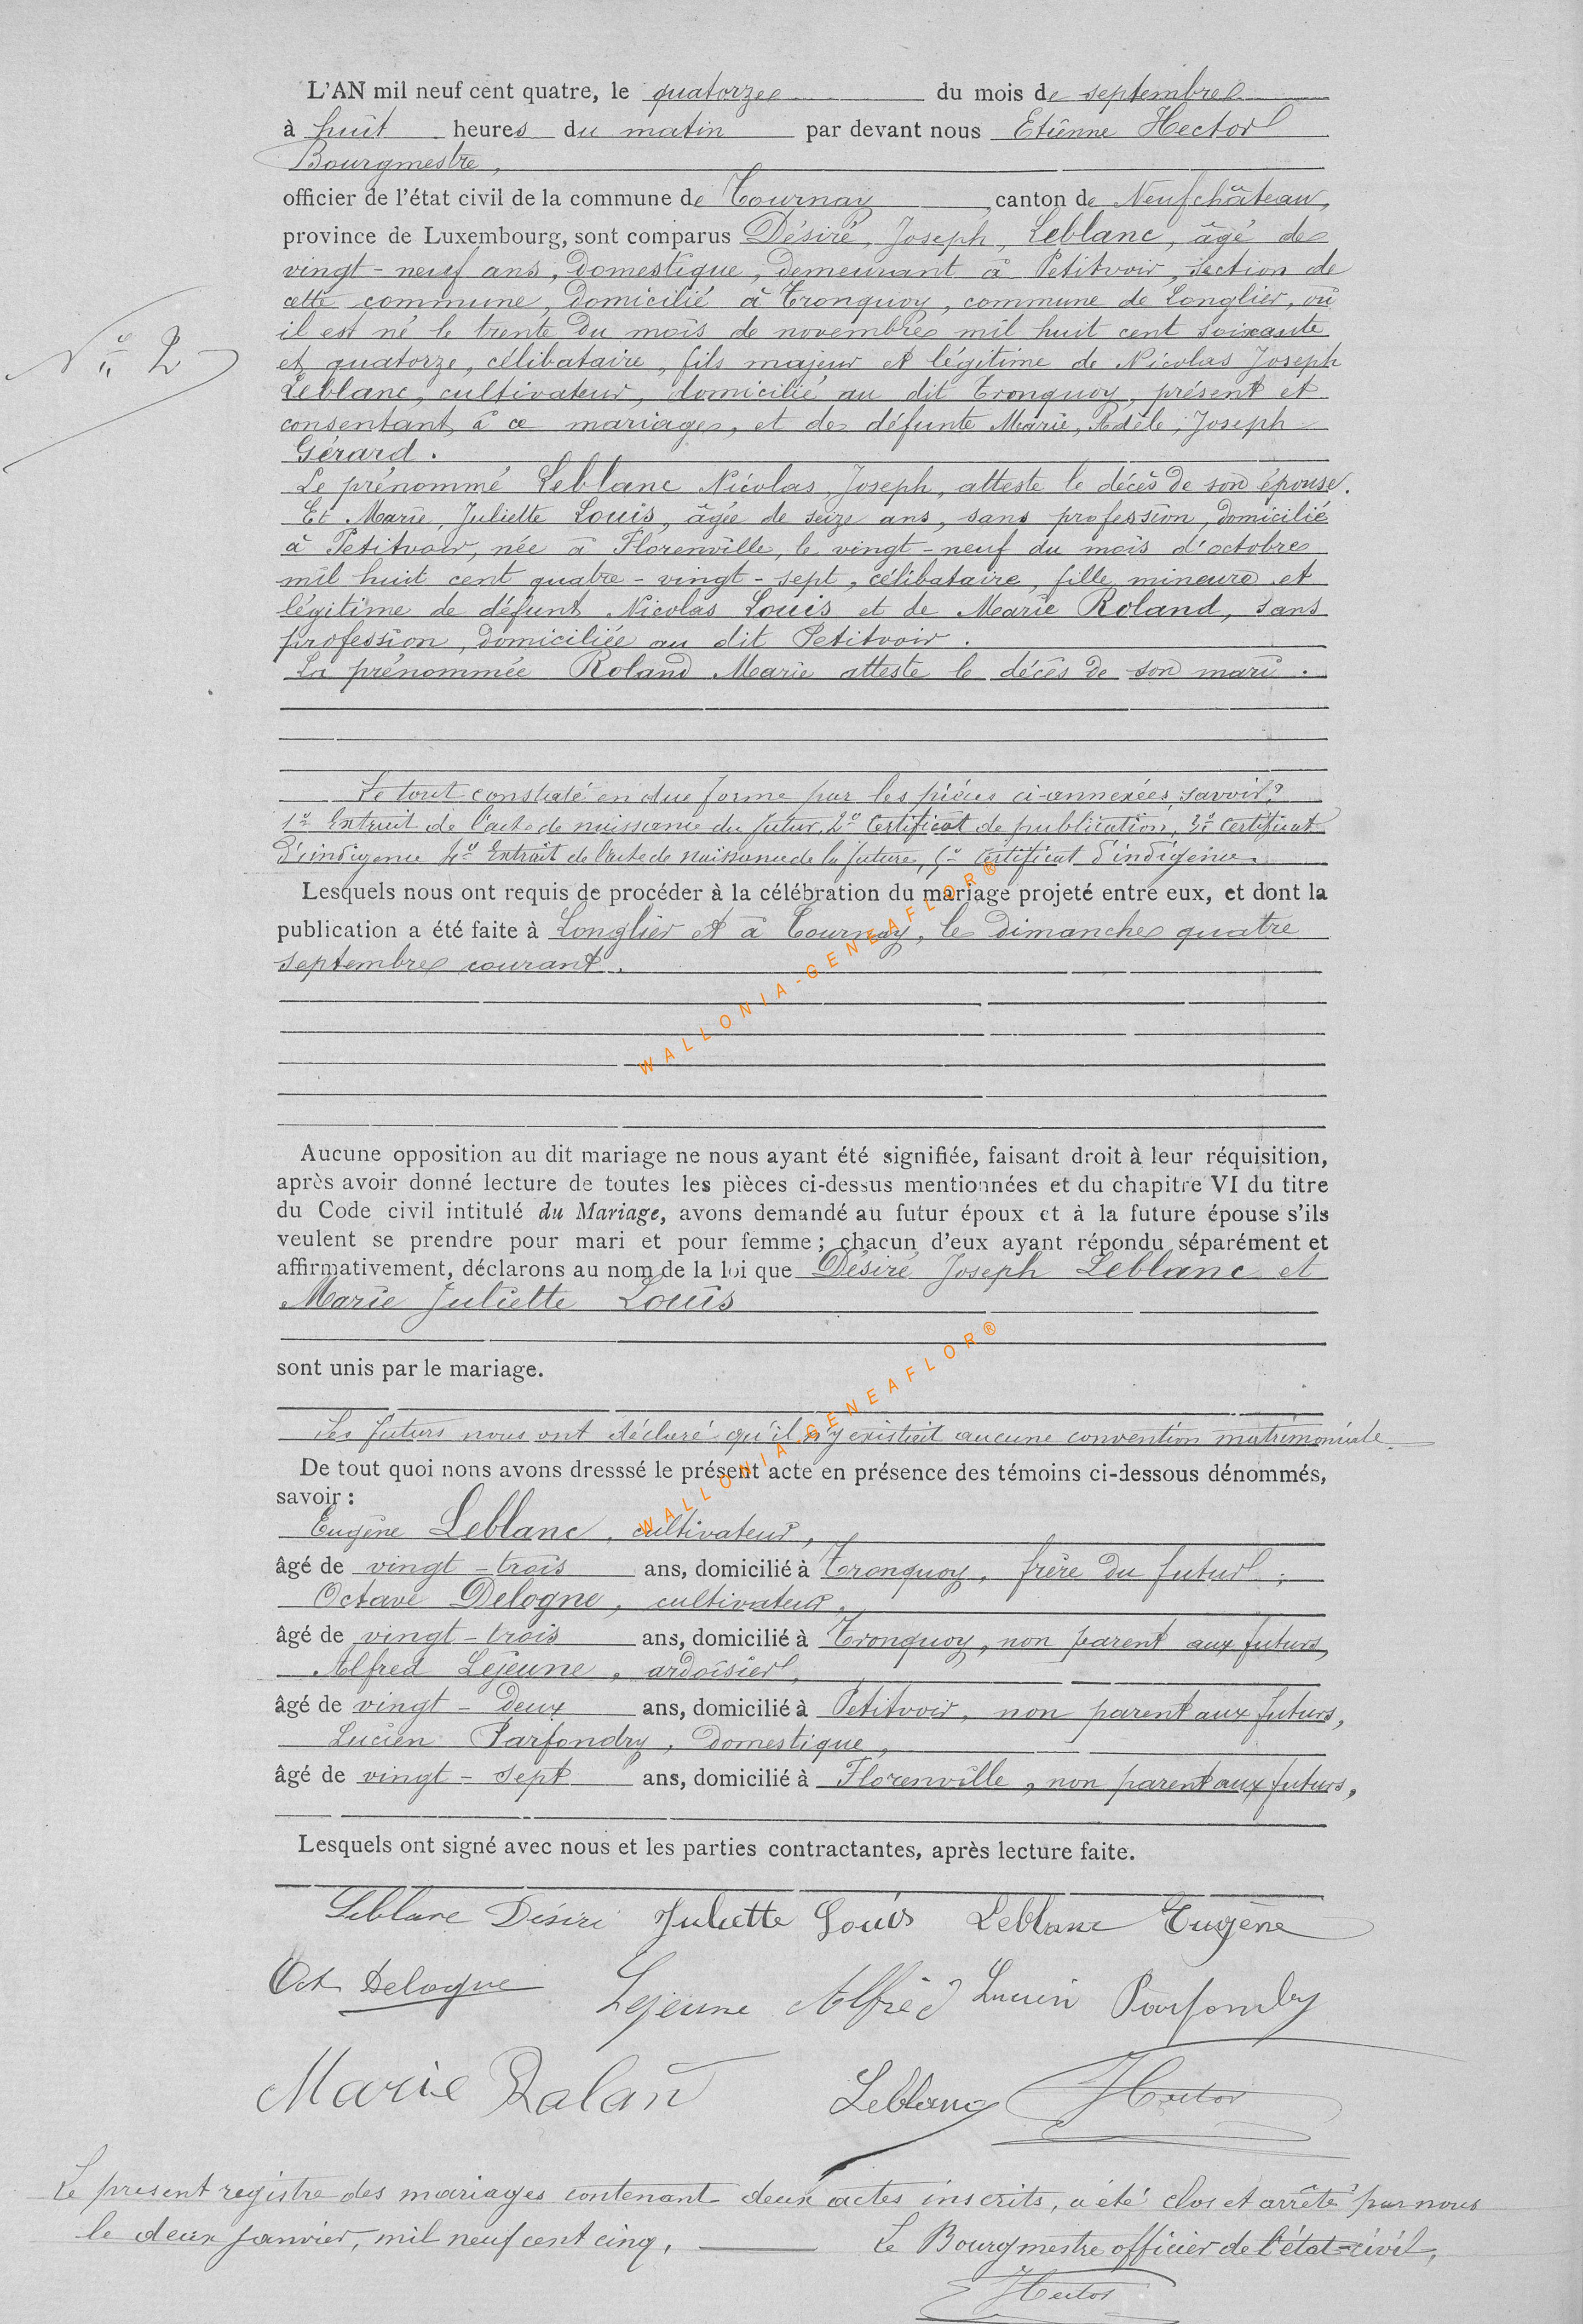 L'AN mil neuf cent quatre, le quatorze du mois de septembre
à huit heures du matin par devant nous Etienne Hector
Bourgmestre,
officier de l'état civil de la commune de Tournay, canton de Neufchâteau,
province de Luxembourg, sont comparus Désiré, Joseph, Leblanc, âgé de
vingt-neuf ans, domestique, demeurant à Petitvoir, section de
cette commune, domicilié à Tronquoy, commune de Longlier, où
il est né le trente du mois de novembre mil huit cent soixante
et quatorze, célibataire, fils majeur et légitime de Nicolas Joseph
Leblanc, cultivateur, domicilié au dit Tronquoy, présent et
consentant à ce mariage, et de défunte Marie, Adèle, Joseph
Gérard.
N° 2
Le prénommé Leblanc Nicolas, Joseph, atteste le décès de son épouse.
Et Marie, Juliette Louis, âgée de seize ans, sans profession, domicilié
à Petitvoir, née à Florenville, le vingt-neuf du mois d'octobre
mil huit cent quatre-vingt-sept, célibataire, fille mineure et
légitime de défunt Nicolas Louis et de Marie Roland, sans
profession, domiciliée au dit Petitvoir.
La prénommée Roland Marie atteste le décès de son mari.
Le tout constaté en due forme par les pièces ci-annexées, savoir:
1° Extrait de l'acte de naissance du futur, 2° Certificat de publication, 3° Certificat
d'indigence 4° Extrait de l'acte de naissance de la future, 5° Certificat d'indigence.
Lesquels nous ont requis de procéder à la célébration du mariage projeté entre eux, et dont la
publication a été faite à Longlier et à Tournay, le dimanche quatre
septembre courant.
WALLONIA-GENEAFLOR®
Aucune opposition au dit mariage ne nous ayant été signifiée, faisant droit à leur réquisition,
après avoir donné lecture de toutes les pièces ci-dessus mentionnées et du chapitre VI du titre
du Code civil intitulé du Mariage, avons demandé au futur époux et à la future épouse s'ils
veulent se prendre pour mari et pour femme; chacun d'eux ayant répondu séparément et
affirmativement, déclarons au nom de la loi que Désiré Joseph Leblanc et
Marie Juliette Louis
sont unis par le mariage.
WALLONIA-GENEAFLOR®
Les futurs nous ont déclaré qu'il n'y existait aucune convention matrimoniale.
De tout quoi nons avons dresssé le présent acte en présence des témoins ci-dessous dénommés,
savoir:
Eugène Leblanc, cultivateur,
âgé de vingt-trois ans, domicilié à Tronquoy, frère du futur;
Octave Delogne, cultivateur,
âgé de vingt-trois ans, domicilié à Tronquoy, non parent aux futurs,
Alfred Lejeune, ardoisier,
âgé de vingt-deux ans, domicilié à Petitvoir, non parent aux futurs,
Lucien Parfondry, domestique,
âgé de vingt-sept ans, domicilié à Florenville, non parent aux futurs,
Lesquels ont signé avec nous et les parties contractantes, après lecture faite.
Leblanc Désiré Juliette Louis Leblanc Eugène
Oct Delogne Lejeune Alfred Lucien Parfondry
Marie Ralan Leblanc Hector
Le présent registre des mariages contenant deux actes inscrits, a été clos et arrêté par nous
le deux janvier, mil neuf cent cinq. Le Bourgmestre officier de l'état-civil,
Hector